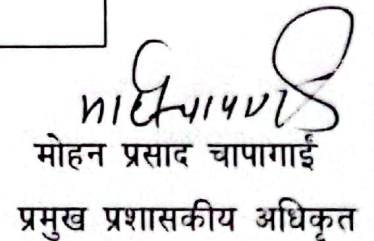 मोहन प्रसाद चापागाईं
प्रमुख प्रशासकीय अधिकृत